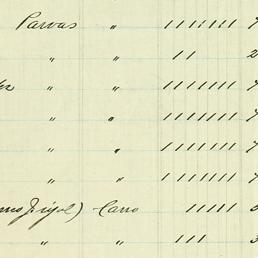 Parvas " 1111111 7
" " 11 2
" " 1111111 7
" " 1111111 7
" " 1111111 7
" " 1111111 7
Carro 11111
" " 111 3